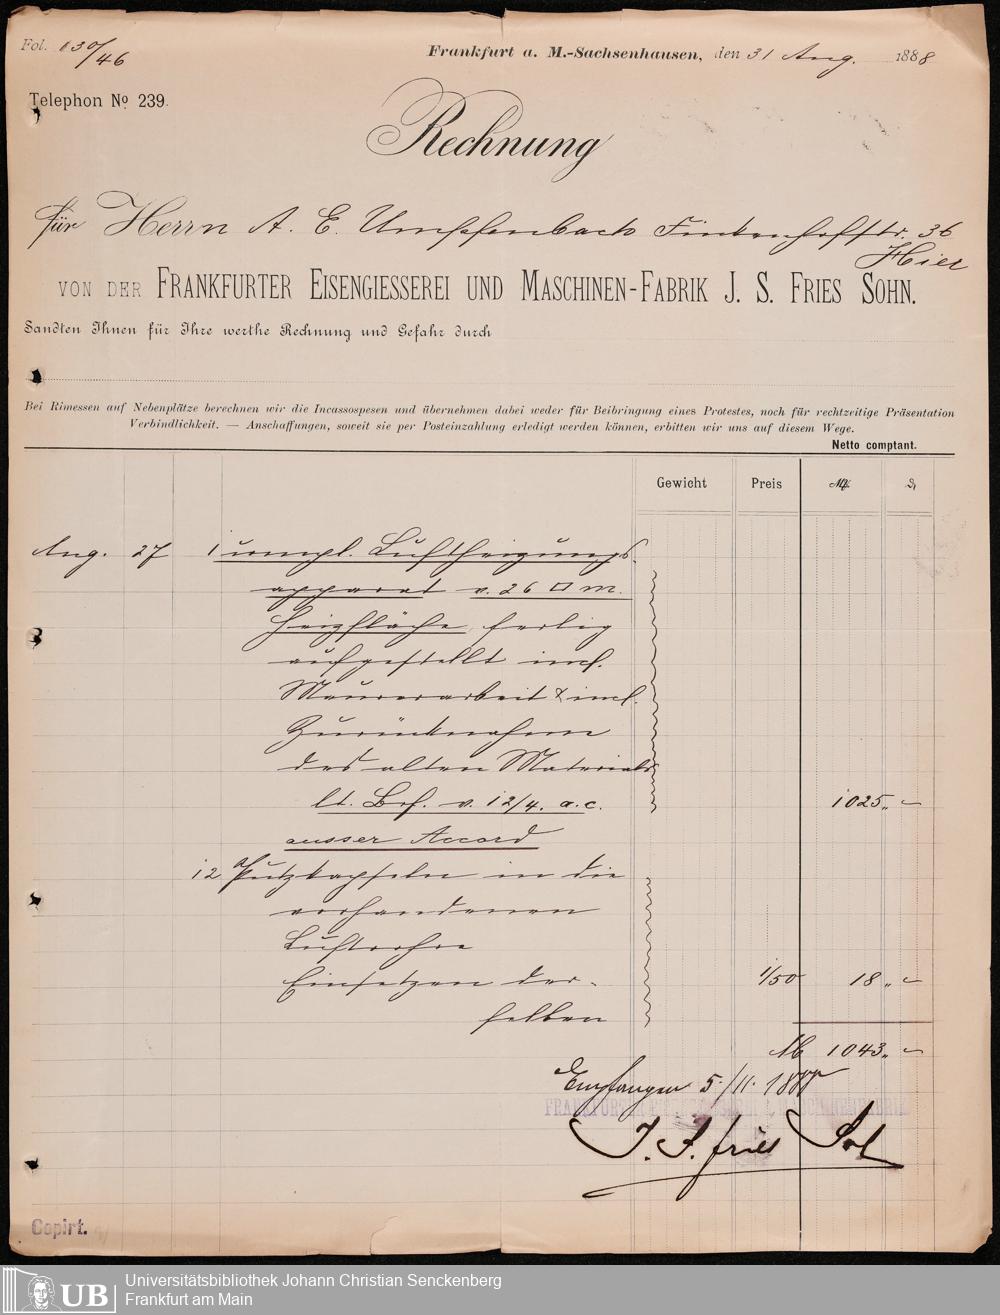 Fol. 130/46
Frankfurt a. M.-Sachsenhausen, den 31 Aug. 1888
Telephon No 239.
Rechnung
für Herrn A. E. Umpfenbach Finkenhofstr. 36
Hier
VON DER FRANKFURTER EISENGIESSEREI UND MASCHINEN-FABRIK J. S. FRIES SOHN.
Sandten Ihnen für Ihre werthe Rechnung und Gefahr durch
Bei Rimessen auf Nebenplätze berechnen wir die Incassospesen und übernehmen dabei weder für Beibringung eines Protestes, noch für rechtzeitige Präsentation
Verbindlichkeit. — Anschaffungen, soweit sie per Posteinzahlung erledigt werden können, erbitten wir uns auf diesem Wege.
Netto comptant.
Gewicht Preis M ₰
Aug. 27 1 compl. Luftheizungs-
apparat v. 26 □ m.
Heizfläche, fertig
aufgestellt incl.
Maurerarbeit & incl.
Zurücknahme
des alten Materials
lt. Brf. v. 12/4. a.c. 1025 „ –
ausser Accord
12 Putzkapseln in die
vorhandenen
Luftrohre
Einsetzen der- 1/50 18 „ –
selben
M 1043 „ –
Empfangen 5./11. 1888
FRANKFURTER EISENGIESSEREI & MASCHINENFABRIK
J. S. Fries Sohn
Copirt.
UB
Universitätsbibliothek Johann Christian Senckenberg
Frankfurt am Main